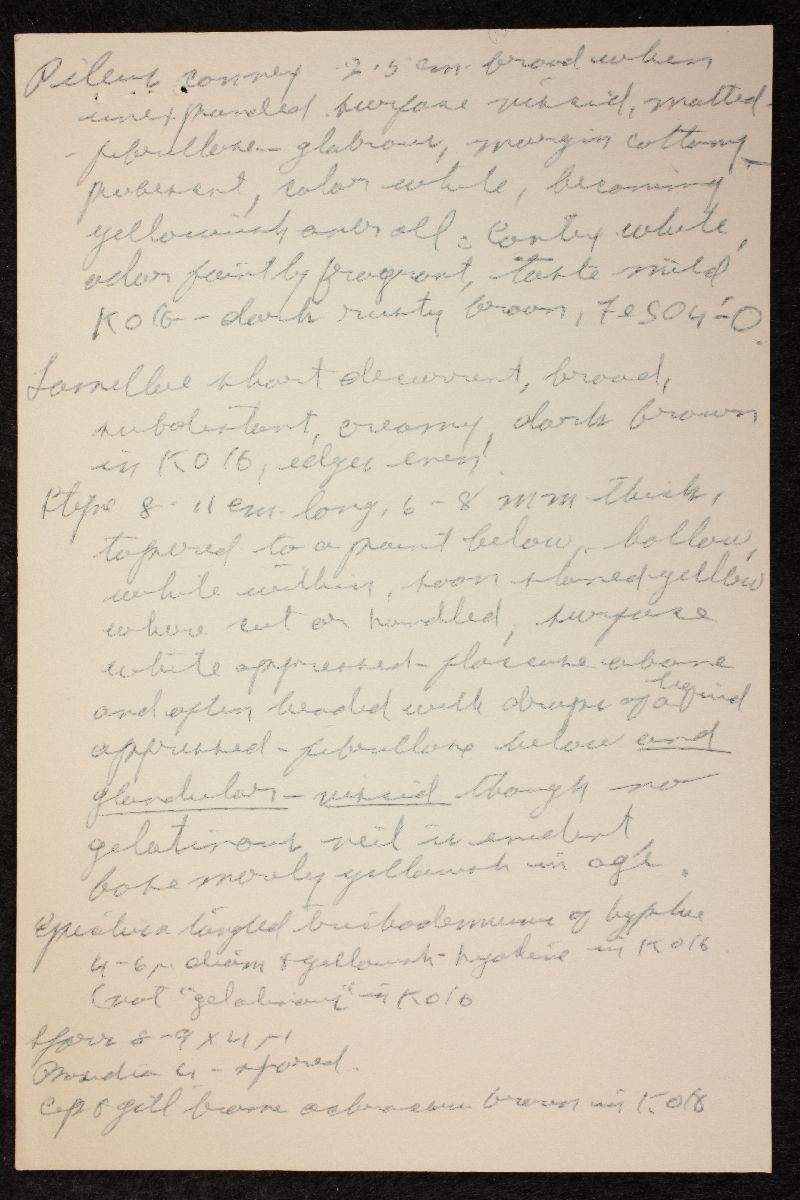 Pileus convex 2.5 cm. broad when
unexpanded. surface viscid, matted-
- fibrillose - glabrous, margin cottony-
pubescent, color white, becoming
yellowish over all. Contex white,
odor faintly fragrant, taste mild
KOH - dark rusty brown, FeSO4 - O.
Lamellae short decurrent, broad,
subdistant, creamy, dark brown
in KOH, edges even.
Stipe 8-11 cm. long, 6-8 mm thick,
tapered to a point below, hollow,
white within, soon stained yellow
where cut or handled, surface
white appressed-floccose above
and often beaded with drops of a liquid
appressed-fibrillose below and
glandular - viscid though no
gelatinous veil is evident
base merely yellowish in age.
Epicutis a tangled trichodermium of hyphae
4-6µ diam & yellowish-hyaline in KOH
(not "gelatinous" in KOH
Spores 8-9 x 4 µ
Basidia 4-spored.
Cap & gill ochraceous brown in KOH